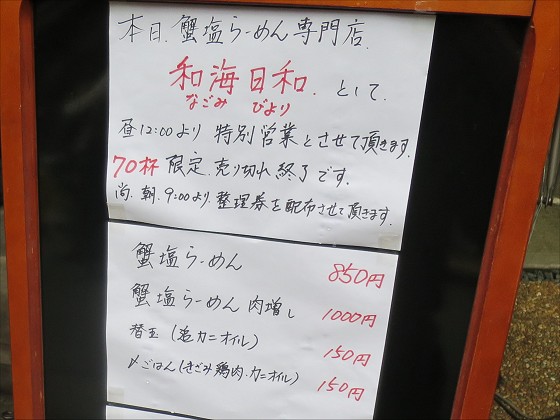 本日、蟹塩らーめん専門店、
和海日和、として、
なごみ びより
昼12:00より 特別営業とさせて頂きます。
70杯 限定、売り切れ終了です。
尚、朝、9:00より、整理券を配布させて頂きます。
蟹塩らーめん 850円
蟹塩らーめん 肉増し 1000円
替玉(追カニオイル) 150円
〆ごはん(きざみ鶏肉、カニオイル) 150円